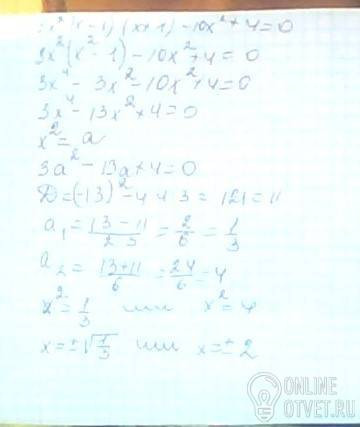 3x²(x-1)(x+1)-10x²+4=0
3x²(x²-1)-10x²+4=0
3x⁴-3x²-10x²+4=0
3x⁴-13x²+4=0
x²=a
3a²-13a+4=0
D=(-13)²-4·4·3=121=11
a₁=(13-11)/(2·3)=2/6=1/3
a₂=(13+11)/6=24/6=4
x²=1/3 или x²=4
x=±√(1/3) или x=±2
ONLINE
OTVET.RU